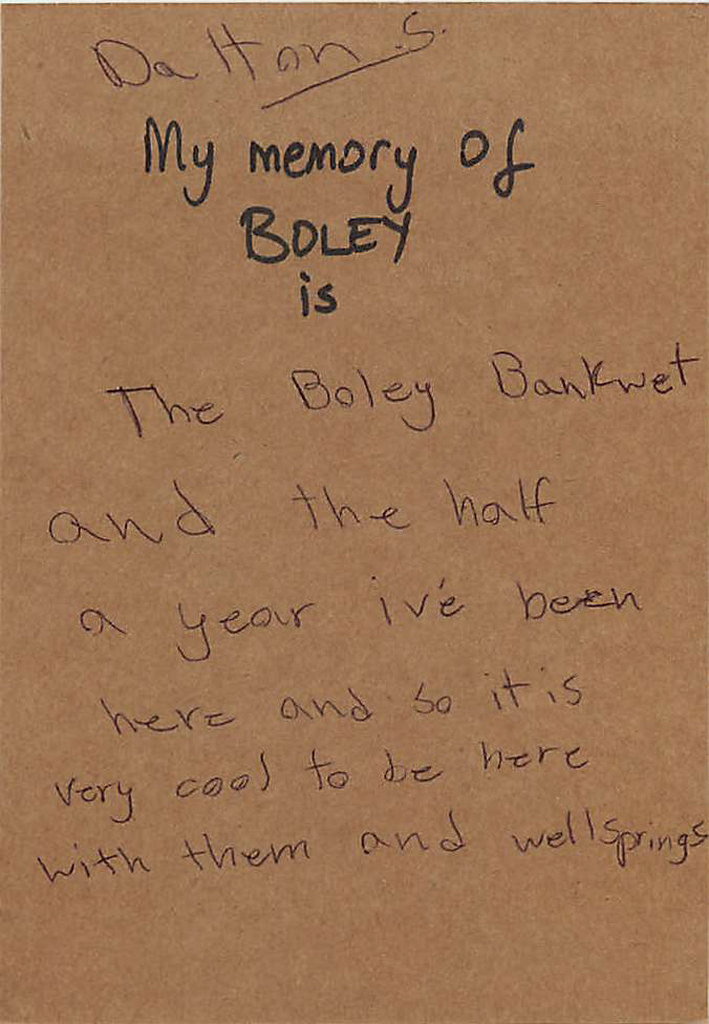 Dalton S.
My memory of
BOLEY
is
The Boley Bankwet
and the half
a year iv'e been
here and so it is
very cool to be here
with them and wellsprings